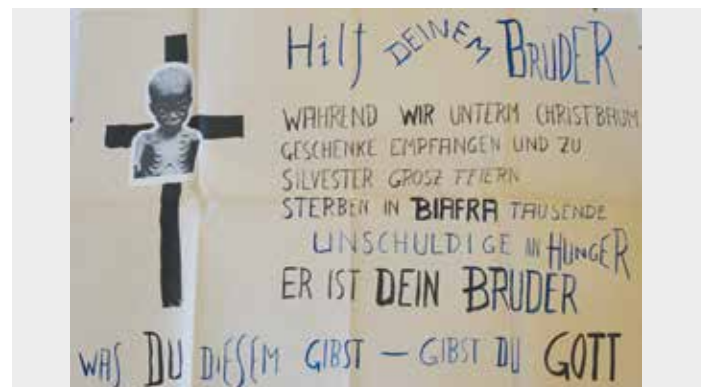 Hilf DEINEM BRUDER
WÄHREND WIR UNTERM CHRISTBAUM
GESCHENKE EMPFANGEN UND ZU
SILVESTER GROSZ FEIERN
STERBEN IN BIAFRA TAUSENDE
UNSCHULDIGE AN HUNGER
ER IST DEIN BRUDER
WAS DU DIESEM GIBST — GIBST DU GOTT